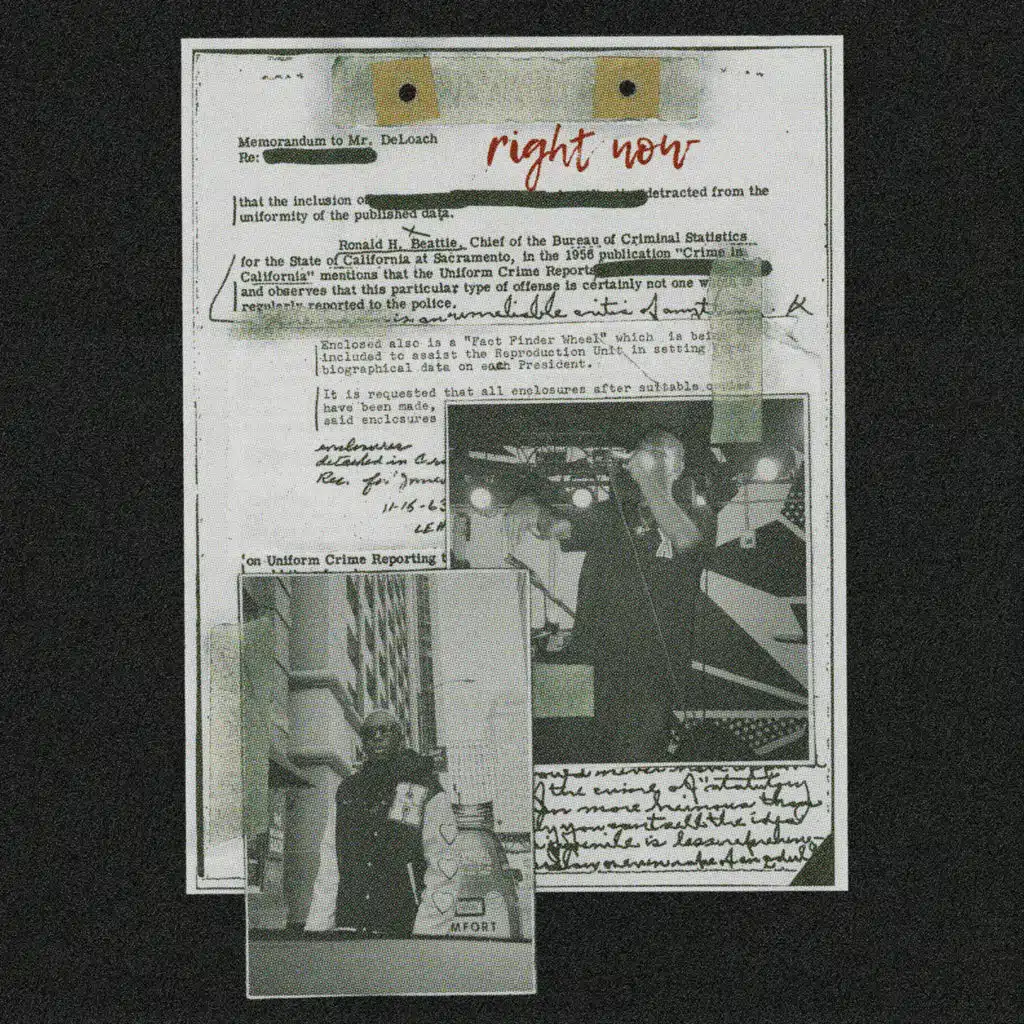 Memorandum to Mr. DeLoach
Re:
right now
that the inclusion of detracted from the
uniformity of the published data.
Ronald H. Beattie, Chief of the Bureau of Criminal Statistics
for the State of California at Sacramento, in the 1956 publication "Crime in
California" mentions that the Uniform Crime Reports
and observes that this particular type of offense is certainly not one
regularly reported to the police.
is an unreliable critic
Enclosed also is a "Fact Finder Wheel" which is
included to assist the Reproduction Unit in setting
biographical data on each President.
It is requested that all enclosures after suitable
have been made,
said enclosures
enclosures
detached in
Rec. for
11-15-63
LEH
on Uniform Crime Reporting
the crime of "statutory
more heinous than
you can't sell the idea
is less
MFORT